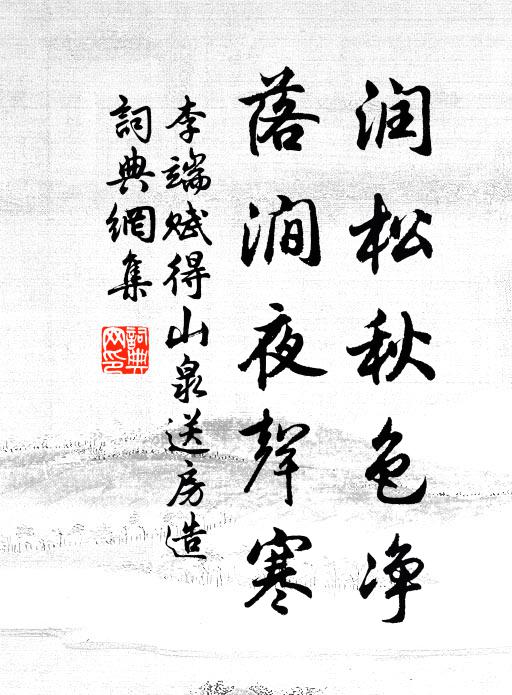 润松秋色净
落澗夜聲寒
李端赋得山泉送房造
詞典網集
詞典
网印